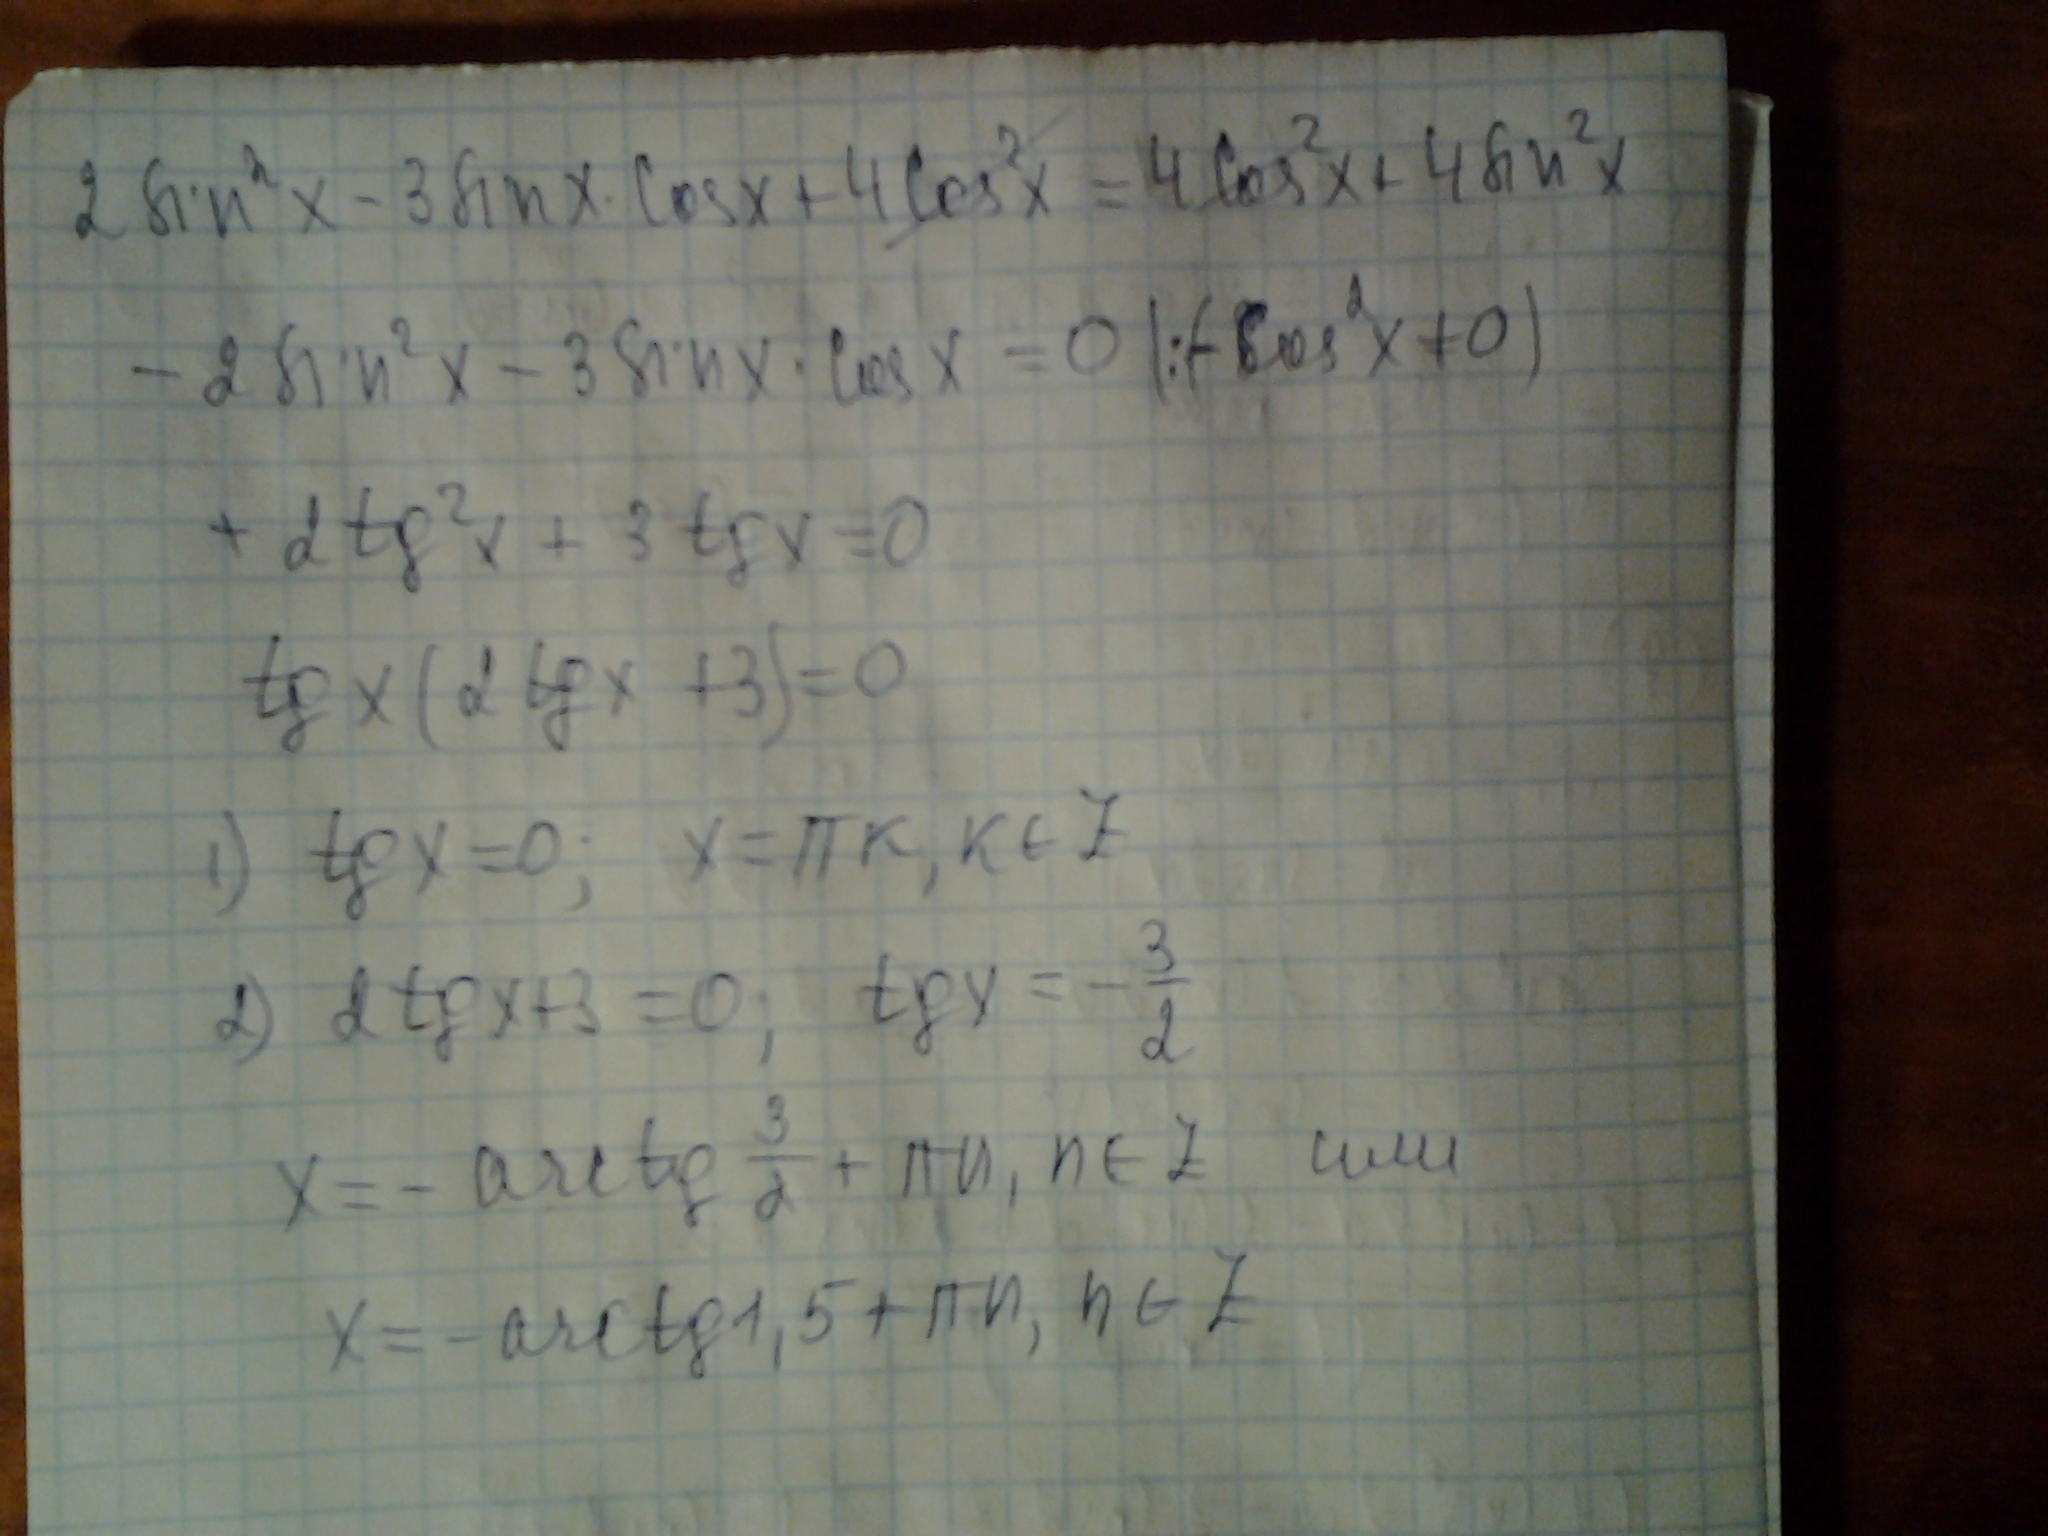 2 sin²x - 3 sin x · cos x + 4 cos²x = 4 cos²x + 4 sin²x
- 2 sin²x - 3 sin x · cos x = 0 (:(- cos²x ≠ 0)
+ 2 tg²x + 3 tg x = 0
tg x (2 tg x + 3) = 0
1) tg x = 0; x = πк, к ∈ Z
2) 2 tg x + 3 = 0; tg x = - 3/2
x = - arctg 3/2 + πn, n ∈ Z или
x = - arctg 1,5 + πn, n ∈ Z